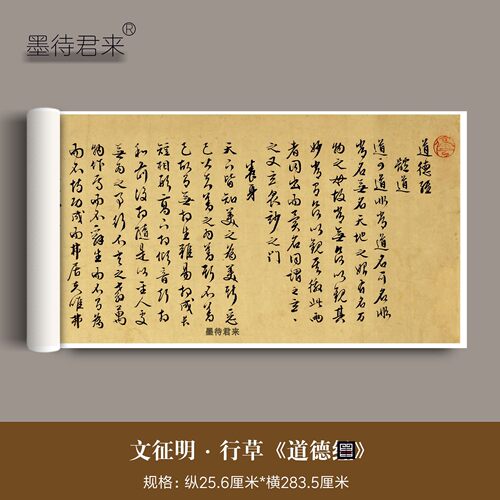 墨待君来®
道德經
體道
道可道非常道名可名非
常名無名天地之始有名万
物之母故常無欲以觀其
妙常有欲以觀其徼此两
者同出而異名同謂之玄
之又玄衆妙之门
養身
天下皆知美之為美斯惡
已皆知善之為善斯不善
已故有無相生難易相成长
短相形高下相傾音聲相
和前後相隨是以聖人處
無為之事行不言之教萬
物作焉而不辭生而不有為
而不恃功成而弗居夫唯弗
墨待君来
文征明·行草《道德经》
规格:纵25.6厘米*横283.5厘米